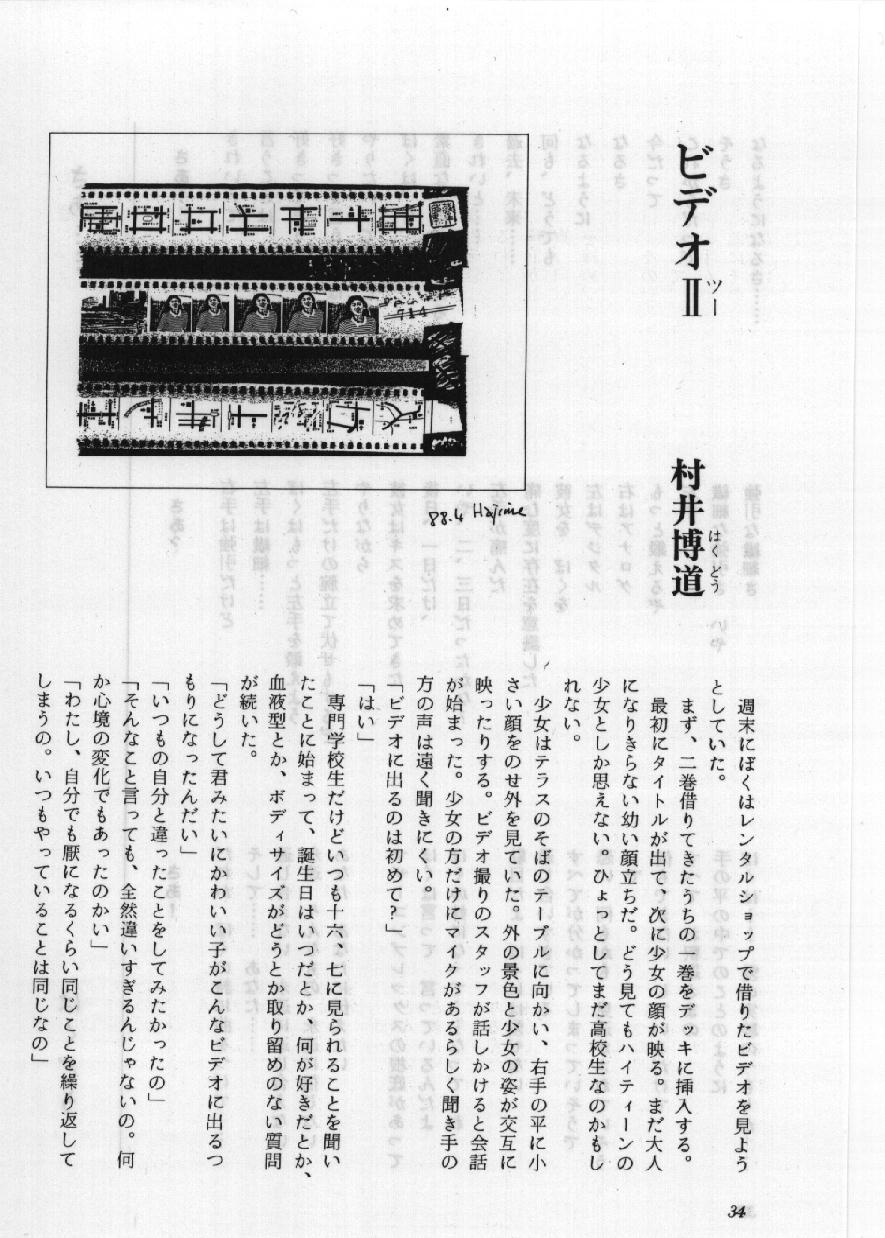 ビデオⅡ
ツー
村井博道
はくどう
714
88.4 Hajime
週末にぼくはレンタルショップで借りたビデオを見よう
としていた。
まず、二巻借りてきたうちの一巻をデッキに挿入する。
最初にタイトルが出て、次に少女の顔が映る。まだ大人
になりきらない幼い顔立ちだ。どう見てもハイティーンの
少女としか思えない。ひょっとしてまだ高校生なのかもし
れない。
少女はテラスのそばのテーブルに向かい、右手の平に小
さい顔をのせ外を見ていた。外の景色と少女の姿が交互に
映ったりする。ビデオ撮りのスタッフが話しかけると会話
が始まった。少女の方だけにマイクがあるらしく聞き手の
方の声は遠く聞きにくい。
「ビデオに出るのは初めて?」
「はい」
専門学校生だけどいつも十六、七に見られることを聞い
たことに始まって、誕生日はいつだとか、何が好きだとか、
血液型とか、ボディサイズがどうとか取り留めのない質問
が続いた。
「どうして君みたいにかわいい子がこんなビデオに出るつ
もりになったんだい」
「いつもの自分と違ったことをしてみたかったの」
「そんなこと言っても、全然違いすぎるんじゃないの。何
か心境の変化でもあったのかい」
「わたし、自分でも厭になるくらい同じことを繰り返して
しまうの。いつもやっていることは同じなの」
34